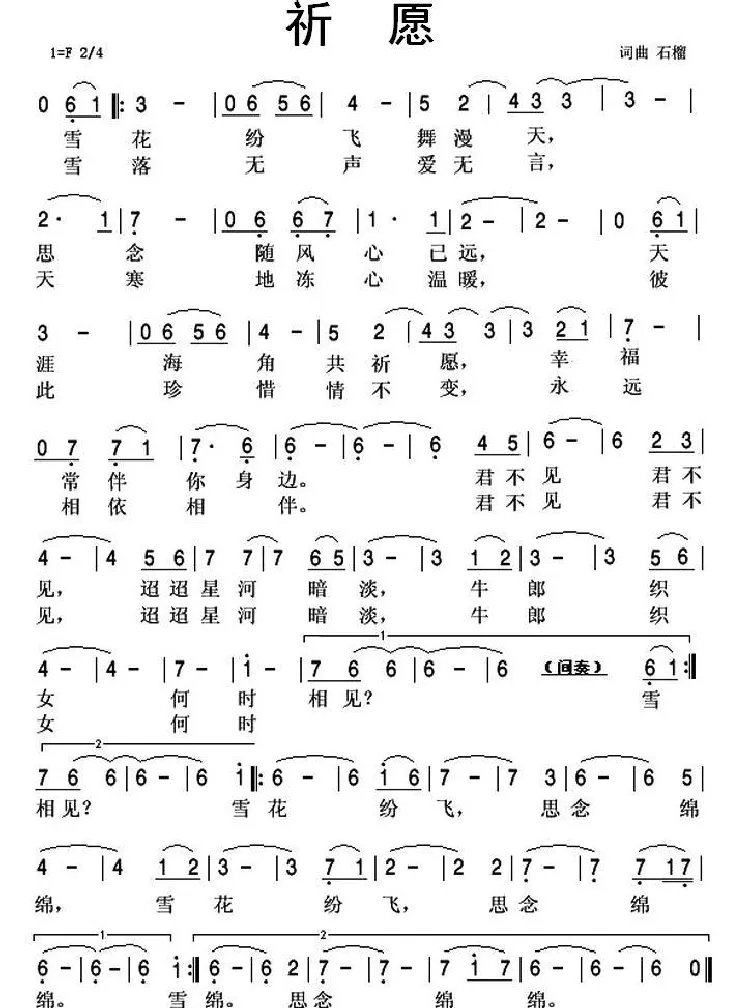 祈 愿
1=F 2/4 词曲 石榴
0 6 1 ‖: 3 - | 0 6 5 6 | 4 - | 5 2 | 4 3 3 | 3 -
雪 花 纷 飞 舞 漫 天,
雪 落 无 声 爱 无 言,
2· 1 | 7 - | 0 6 6 7 | 1· 1 | 2 - | 2 - | 0 6 1
思 念 随 风 心 已 远, 天
天 寒 地 冻 心 温 暖, 彼
3 - | 0 6 5 6 | 4 - | 5 2 | 4 3 3 | 3 2 1 | 7 -
涯 海 角 共 祈 愿, 幸 福
此 珍 惜 情 不 变, 永 远
0 7 7 1 | 7· 6 | 6 - | 6 - | 6 4 5 | 6 - | 6 2 3
常 伴 你 身 边。 君 不 见 君 不
相 依 相 伴。 君 不 见 君 不
4 - | 4 5 6 | 7 7 | 7 6 5 | 3 - | 3 1 2 | 3 - | 3 5 6
见, 迢 迢 星 河 暗 淡, 牛 郎 织
见, 迢 迢 星 河 暗 淡, 牛 郎 织
1
4 - | 4 - | 7 - | 1 - | 7 6 6 | 6 - | 6 (间奏) 6 1 :‖
女 何 时 相 见? 雪
女 何 时
2
7 6 6 | 6 - | 6 1 ‖: 6 - | 6 1 6 | 7 - | 7 3 | 6 - | 6 5
相 见? 雪 花 纷 飞, 思 念 绵
4 - | 4 1 2 | 3 - | 3 7 1 | 2 - | 2 2 | 7 - | 7 7 1 7
绵, 雪 花 纷 飞, 思 念 绵
1 2
6 - | 6 - | 6 1 :‖ 6 - | 6 2 | 7 - | 7 1 7 | 6 - | 6 - | 6 0 ‖
绵。 雪 绵。 思 念 绵 绵。